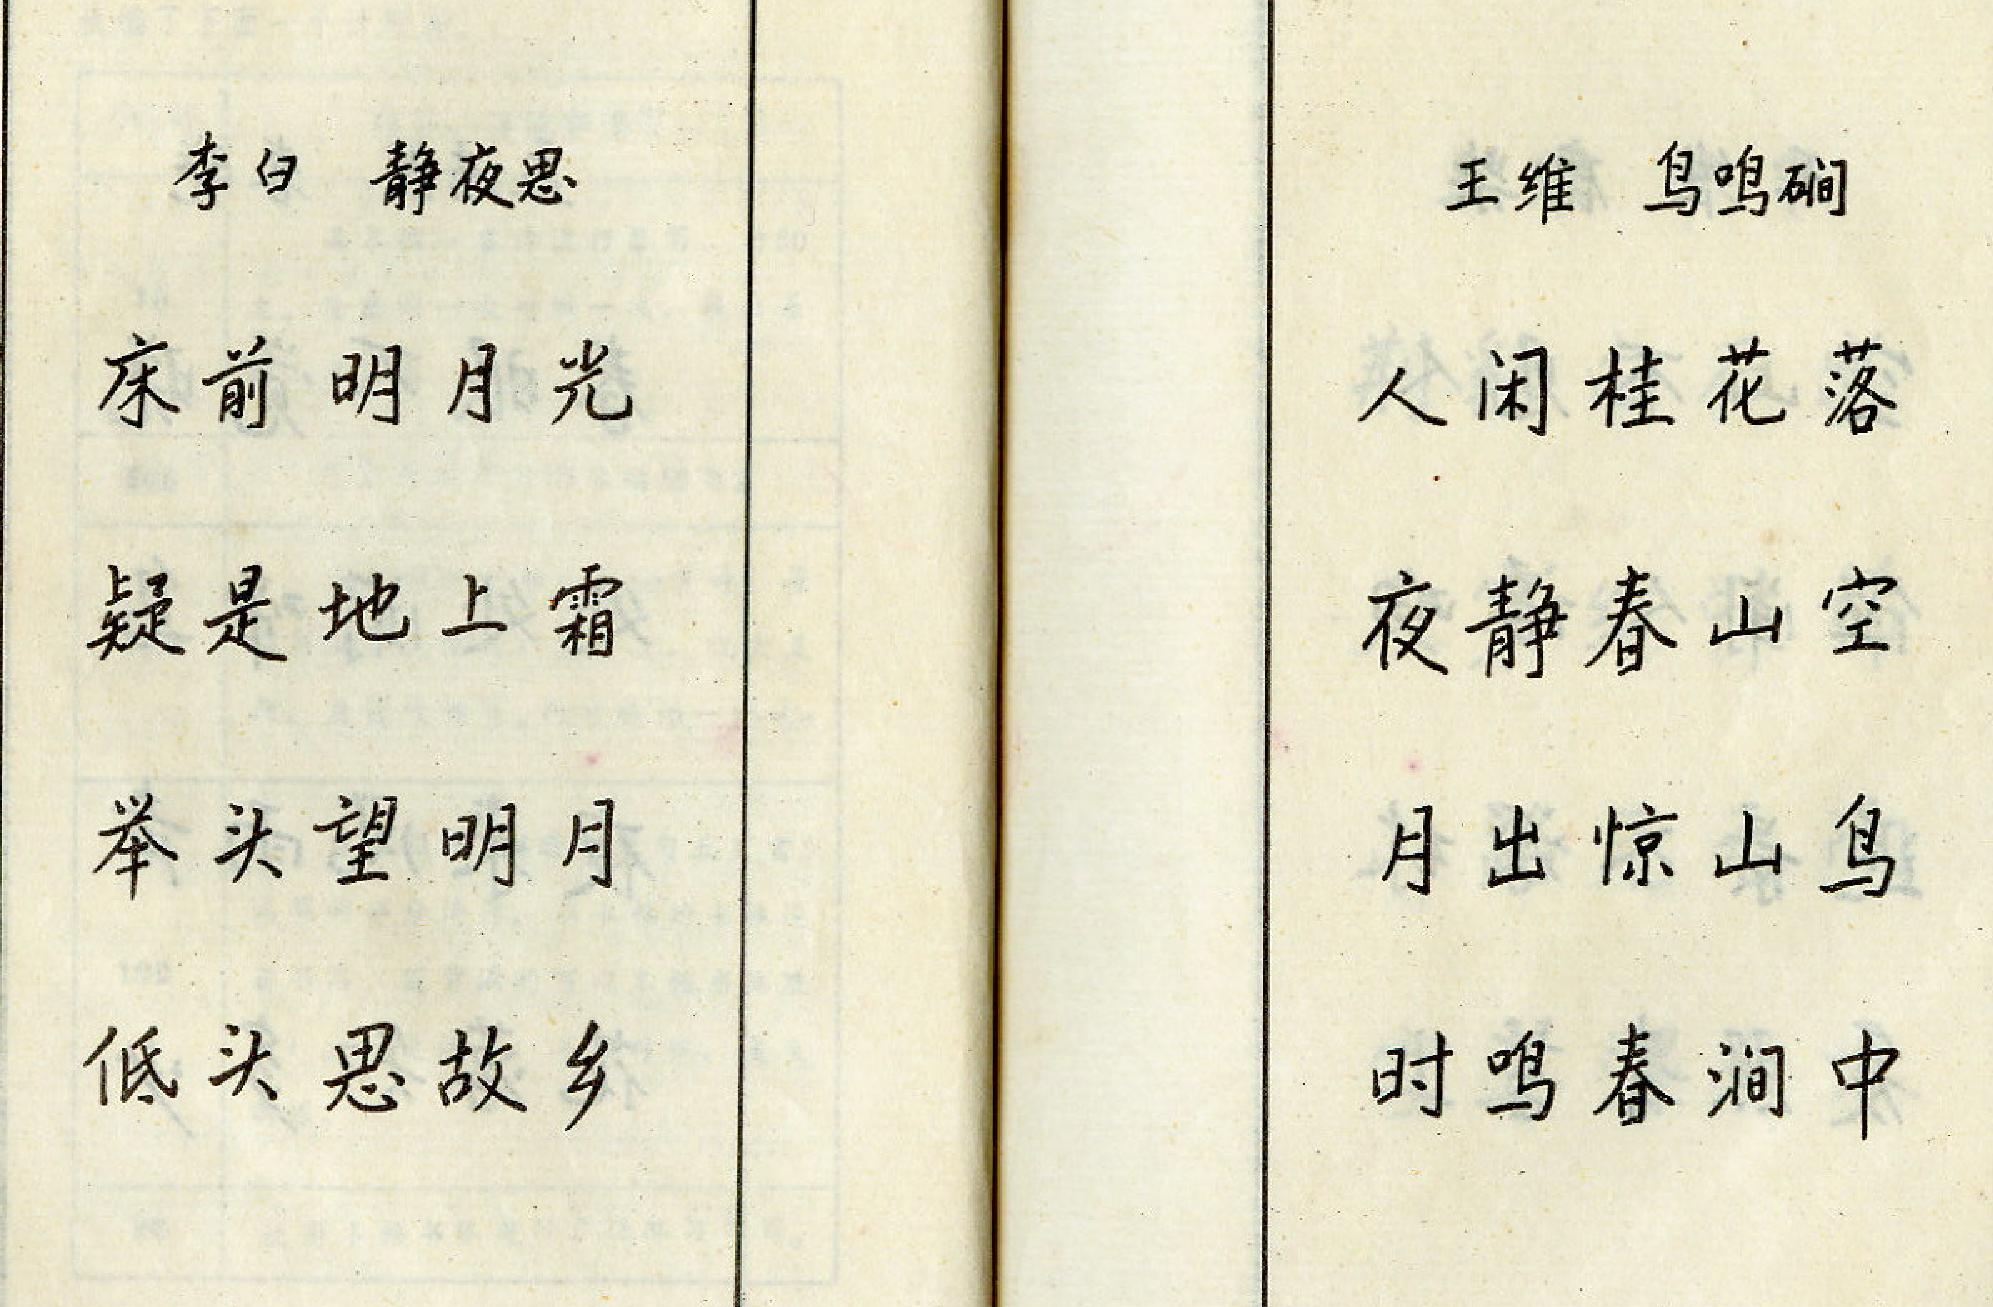 李白 静夜思
床前明月光
疑是地上霜
举头望明月
低头思故乡
王维 鸟鸣磵
人闲桂花落
夜静春山空
月出惊山鸟
时鸣春涧中